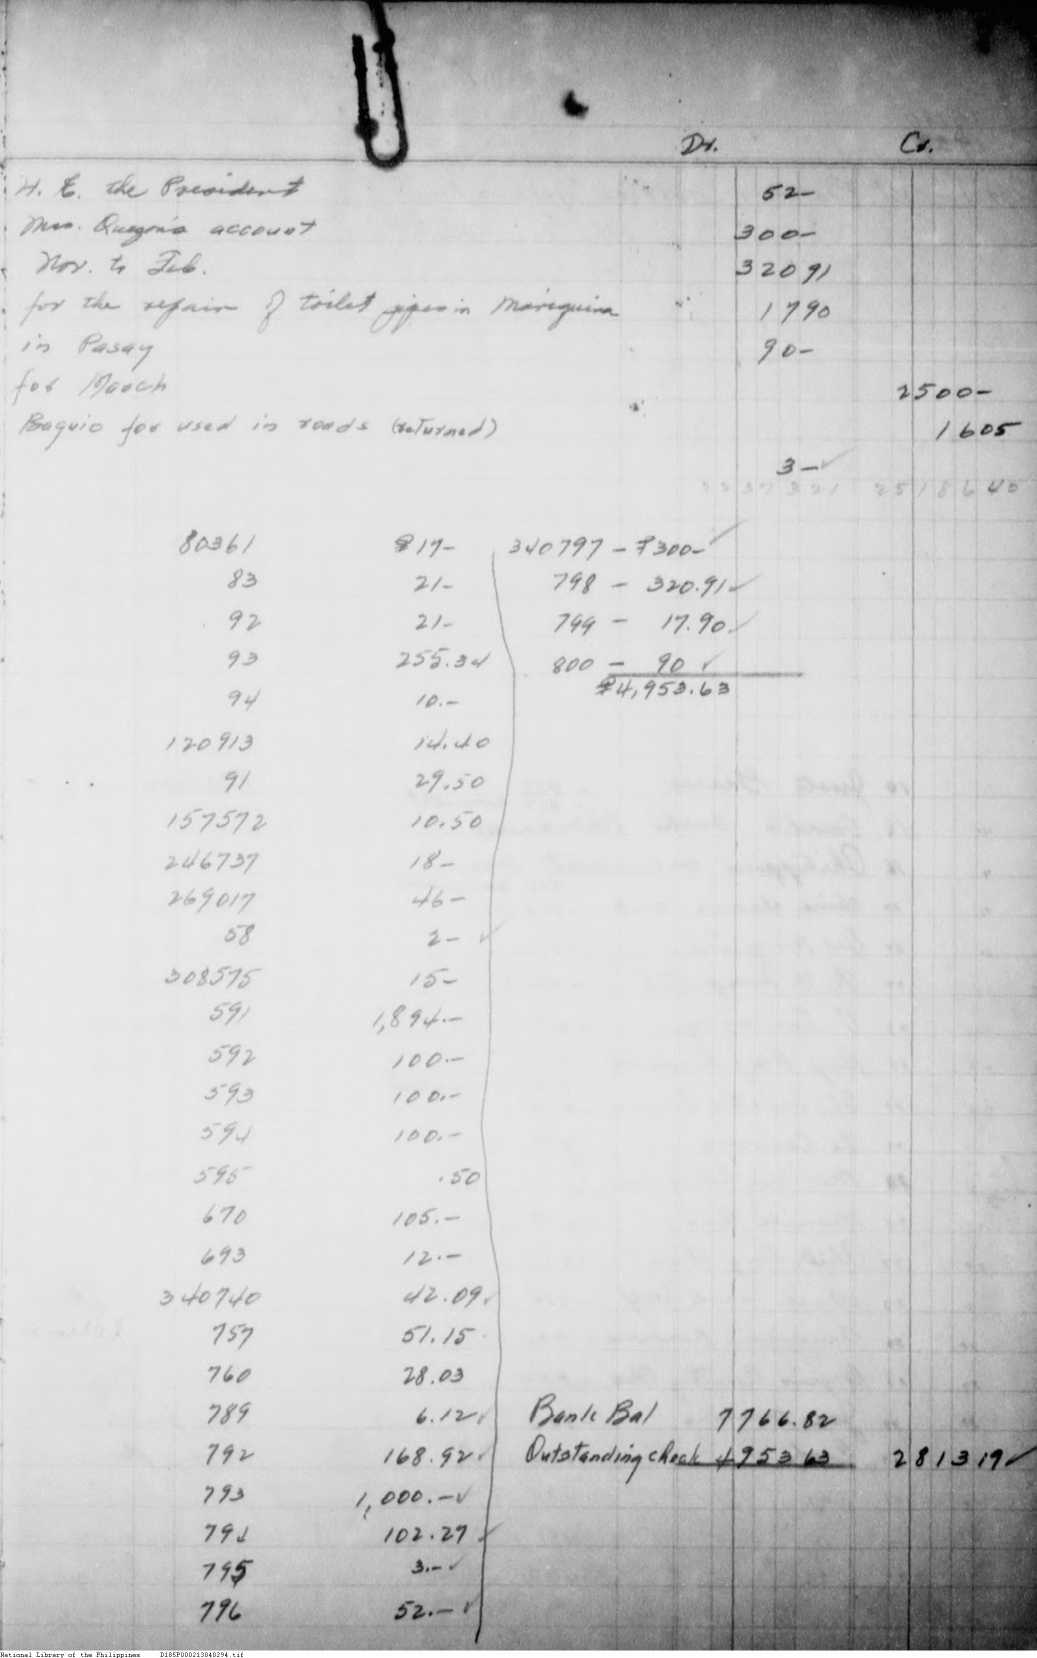 Dr. Cr.
H. E. the President 52-
Mrs. Quezon's account 300-
Nov. to Feb. 320 91
for the repair of toilet pipes in Mariquina 17 90
in Pasay 90-
for March 2500-
Baguio for used in roads (returned) 16 05
3-✓
80361 ₱17- 340797 - ₱300-✓
83 21- 798 - 320.91✓
92 21- 799 - 17.90✓
93 255.34 800 - 90 ✓
94 10.- ₱4,953.63
120913 14.40
91 29.50
157572 10.50
246737 18-
269017 46-
58 2- ✓
308575 15-
591 1,894.-
592 100.-
593 100.-
594 100.-
595 .50
670 105.-
693 12.-
340740 42.09✓
757 51.15
760 28.03
789 6.12✓ Bank Bal 7766.82
792 168.92✓ Outstanding check 4953 63 2813 19✓
793 1,000.-✓
794 102.27 ✓
795 3.-✓
796 52.-✓
National Library of the Philippines D185P000213040294.tif